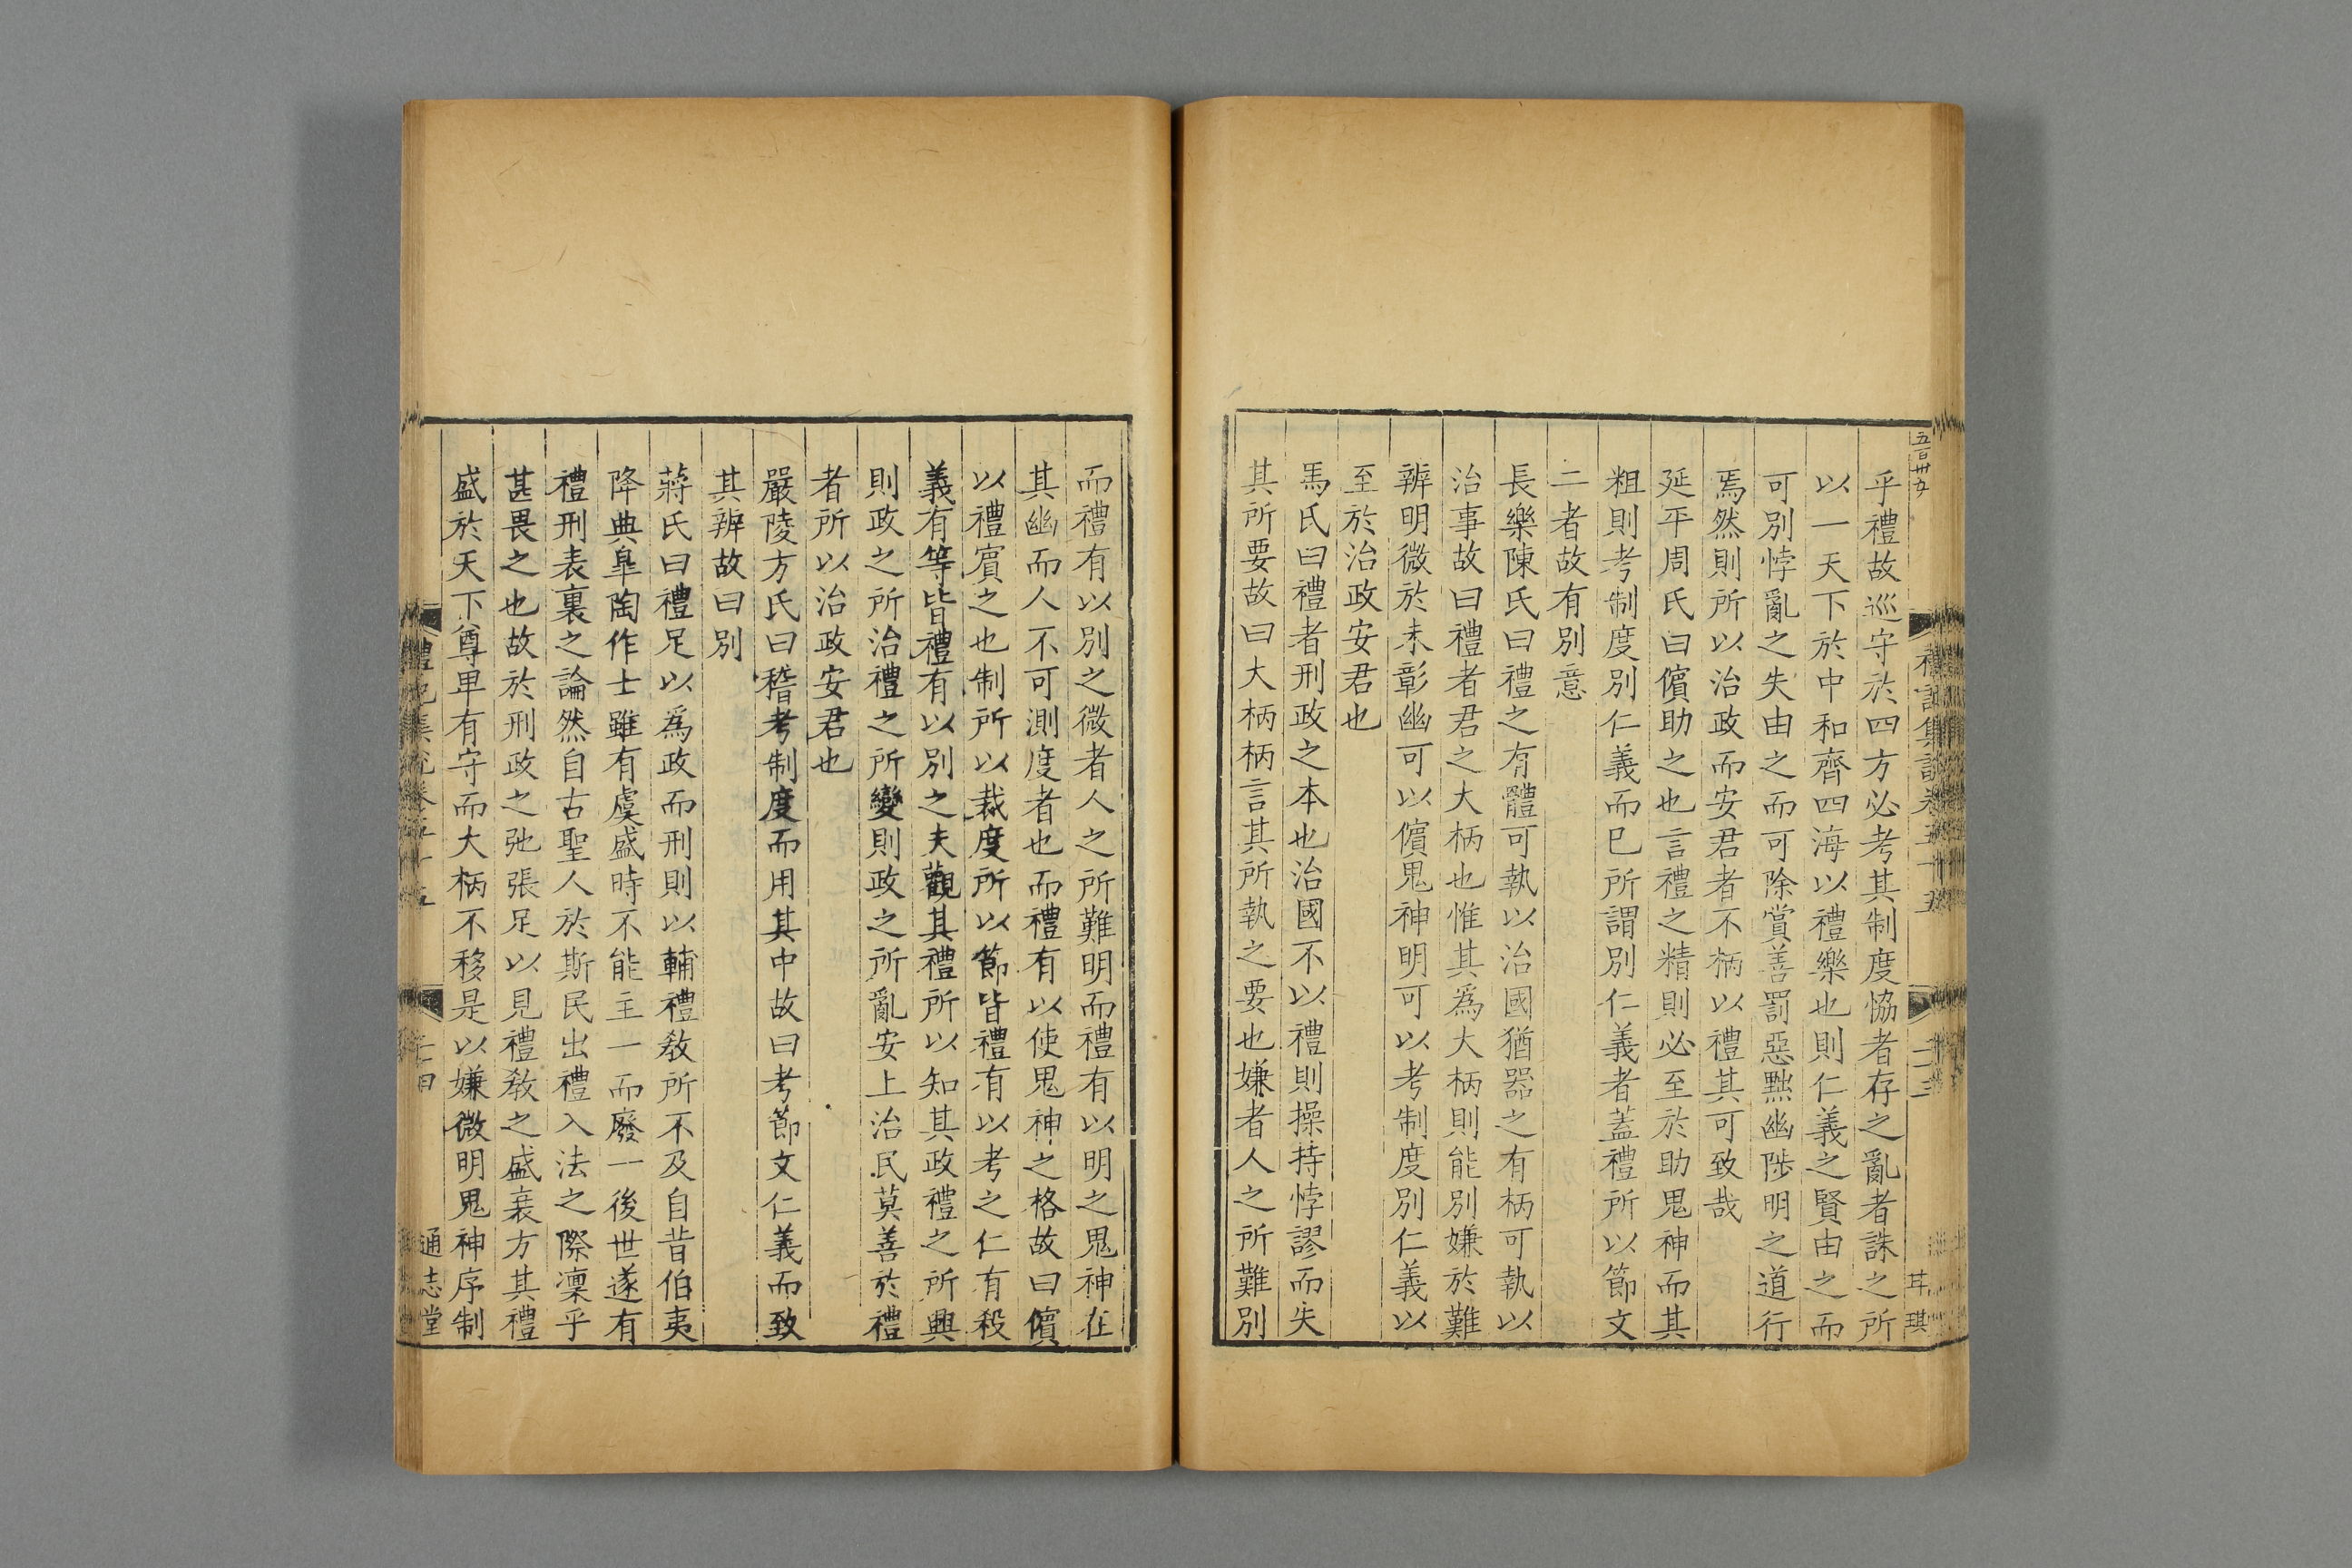 五百卅五
禮記集說卷五十五
二十三
耳琪
乎禮故巡守於四方必考其制度恊者存之亂者誅之所
以一天下於中和齊四海以禮樂也則仁義之賢由之而
可別悖亂之失由之而可除賞善罰惡黜幽陟明之道行
焉然則所以治政而安君者不柄以禮其可致哉
延平周氏曰儐助之也言禮之精則必至於助鬼神而其
粗則考制度別仁義而巳所謂別仁義者蓋禮所以節文
二者故有別意
長樂陳氏曰禮之有體可執以治國猶器之有柄可執以
治事故曰禮者君之大柄也惟其為大柄則能別嫌於難
辨明微於未彰幽可以儐鬼神明可以考制度別仁義以
至於治政安君也
馬氏曰禮者刑政之本也治國不以禮則操持悖謬而失
其所要故曰大柄柄言其所執之要也嫌者人之所難別
而禮有以別之微者人之所難明而禮有以明之鬼神在
其幽而人不可測度者也而禮有以使鬼神之格故曰儐
以禮賓之也制所以裁度所以節皆禮有以考之仁有殺
義有等皆禮有以別之夫觀其禮所以知其政禮之所興
則政之所治禮之所變則政之所亂安上治民莫善於禮
者所以治政安君也
嚴陵方氏曰稽考制度而用其中故曰考節文仁義而致
其辨故曰別
蔣氏曰禮足以為政而刑則以輔禮敎所不及自昔伯夷
降典皐陶作士雖有虞盛時不能主一而廢一後世遂有
禮刑表裏之論然自古聖人於斯民出禮入法之際凜乎
甚畏之也故於刑政之弛張足以見禮敎之盛衰方其禮
盛於天下尊卑有守而大柄不移是以嫌微明鬼神序制
禮記集說卷五十五
通志堂